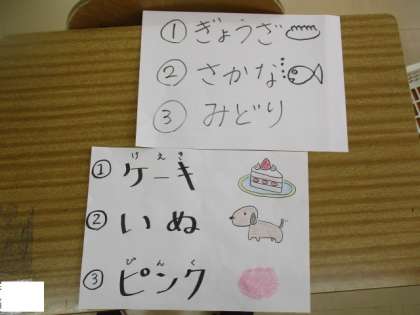 ① ぎょうざ
② さかな
③ みどり
けえき
① ケーキ
② いぬ
ぴんく
③ ピンク